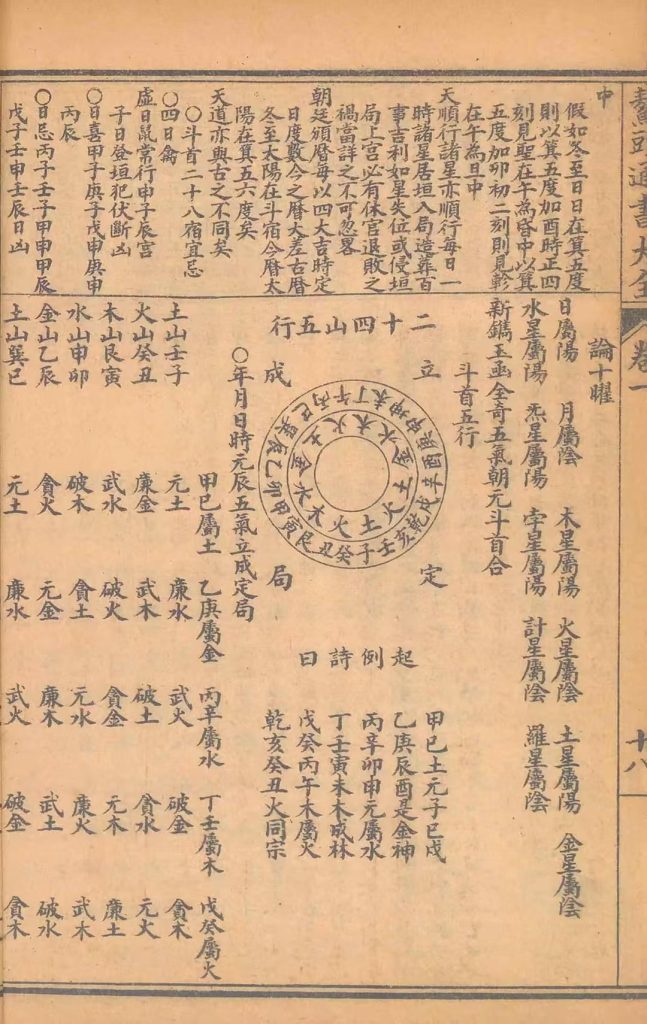 鰲頭通書大全
卷一
十八
中
假如冬至日日在箕五度
則以箕五度加酉時正四
刻見聖在午為昏中以箕
五度加卯初二刻則見軫
在午為旦中
天順行諸星亦順行每日一
時諸星居垣入局造葬百
事吉利如星失位或侵垣
局上宮必有休官退敗之
禍當詳之不可忽畧
朝廷頒曆每以四大吉時定
日度數今之曆大差古曆
冬至太陽在斗宿今曆太
陽在箕五六度矣
天道亦與古之不同矣
○斗首二十八宿宜忌
○四日禽
虛日鼠常行申子辰宮
子日登垣犯伏斷凶
○日喜甲子庚子戊申庚申
丙辰
○日忌丙子壬子甲申甲辰
戊子壬申壬辰日凶
論十曜
日屬陽 月屬陰 木星屬陽 火星屬陰 土星屬陽 金星屬陰
水星屬陽 炁星屬陽 孛星屬陽 計星屬陰 羅星屬陰
新鐫玉函全奇五氣朝元斗首合
斗首五行
二十四山五行
立成定局
壬子癸丑艮寅甲卯乙辰巽巳丙午丁未坤申庚酉辛戌乾亥
土火木水金土火木水金土火
起例詩曰
甲巳土元子巳戍
乙庚辰酉是金神
丙辛卯申元屬水
丁壬寅未木成林
戊癸丙午木屬火
乾亥癸丑火同宗
○年月日時元辰五氣立成定局
甲巳屬土 乙庚屬金 丙辛屬水 丁壬屬木 戊癸屬火
土山壬子 元土 廉水 武火 破金 貪木
火山癸丑 廉金 武木 破土 貪水 元火
木山艮寅 武水 破火 貪金 元木 廉土
水山申卯 破木 貪土 元水 廉火 武木
金山乙辰 貪火 元金 廉木 武土 破水
土山巽巳 元土 廉水 武火 破金 貪木